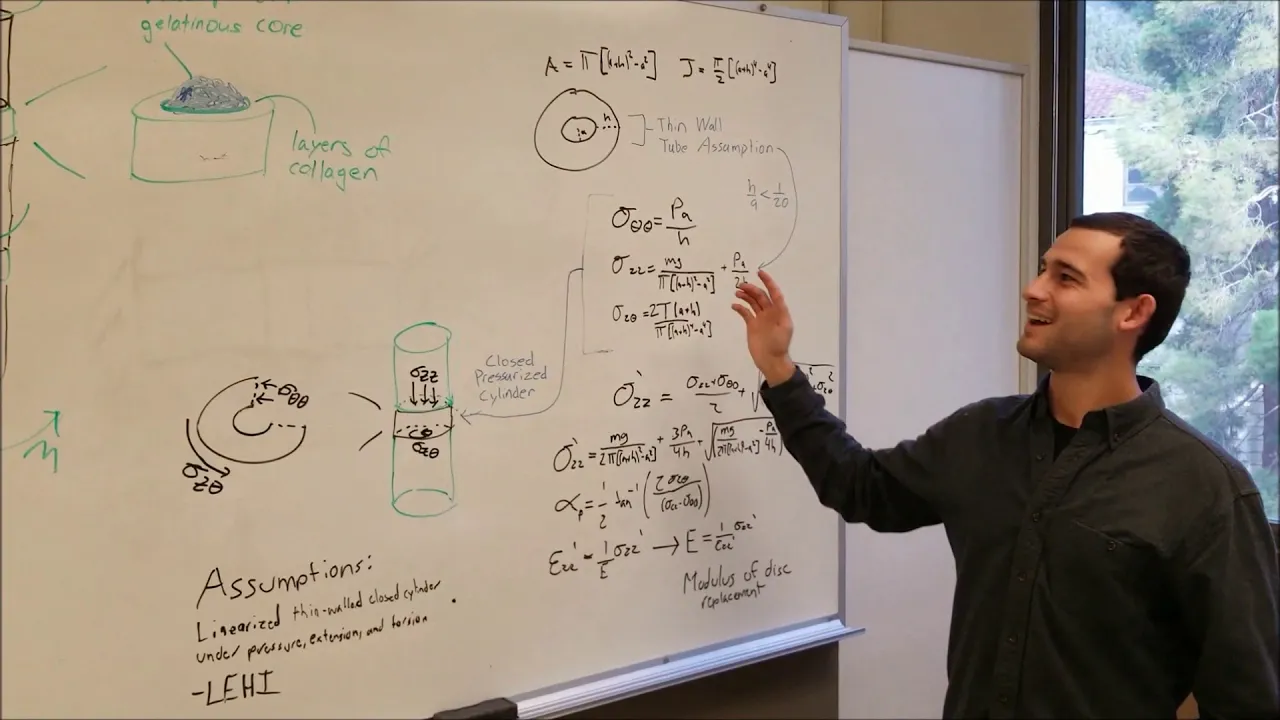 gelatinous core
layers of
collagen
A = π[(a+h)²-a²] J = π/2[(a+h)⁴-a⁴]
h
a
Thin Wall
Tube Assumption
h/a < 1/20
σθθ = Pa/h
σzz = mg/π[(a+h)²-a²] + Pa/2h
σzθ = 2T(a+h)/π[(a+h)⁴-a⁴]
Closed
Pressurized
Cylinder
σzz
σzθ
σθθ
σzθ
σ'zz = σzz+σθθ/2 + √
σ'zz = mg/2π[(a+h)²-a²] + 3Pa/4h + √(mg/2π[(a+h)²-a²] - Pa/4h)
αp = 1/2 tan⁻¹(2σzθ/(σzz-σθθ))
εzz' = 1/E σzz' → E = 1/εzz' σzz'
Modulus of disc
replacement
Assumptions:
Linearized thin-walled closed cylinder
under pressure, extension, and torsion
-LEHI